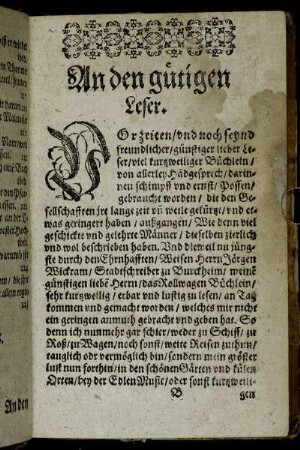 An den gütigen
Leser.
VOr zeiten/vnd noch seynd
freundlicher/günstiger lieber Le-
ser/viel kurtzweiliger Büchlein/
von allerley Händgesprech/darin-
nen schimpff vnd ernst/Possen/
gebraucht worden/die den Ge-
sellschafften jre lange zeit vñ weile gekürtzt/vnd et-
was geringert haben/außgangen/Wie denn viel
geschickter vnd gelehrte Männer/dieselben zierlich
vnd wol beschrieben haben. Vnd dieweil nu jüng-
ste durch den Ehrnhafften/Weisen Herrn Jörgen
Wickram/Stadtschreiber zu Burckheim/meinẽ
günstigen liebẽ Herrn/das Rollwagen Büchlein/
sehr kurtzweilig/erbar vnd lustig zu lesen/an Tag
kommen vnd gemacht worden/welches mir nicht
ein geringen anmuth gebracht vnd geben hat. So
denn ich nunmehr gar schier/weder zu Schiff/zu
Roß/zu Wagen/noch sonst/weite Reisen zuthun/
tauglich odr vermöglich bin/sondern mein gröster
lust nun forthin/in den schönen Gärten vnd külen
Orten/bey der Edlen Music/oder sonst kurtzweili-
B gen
An den